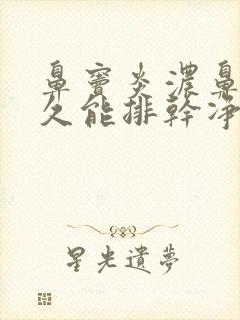 鼻竇炎濃鼻
久能排幹淨
星光遺夢